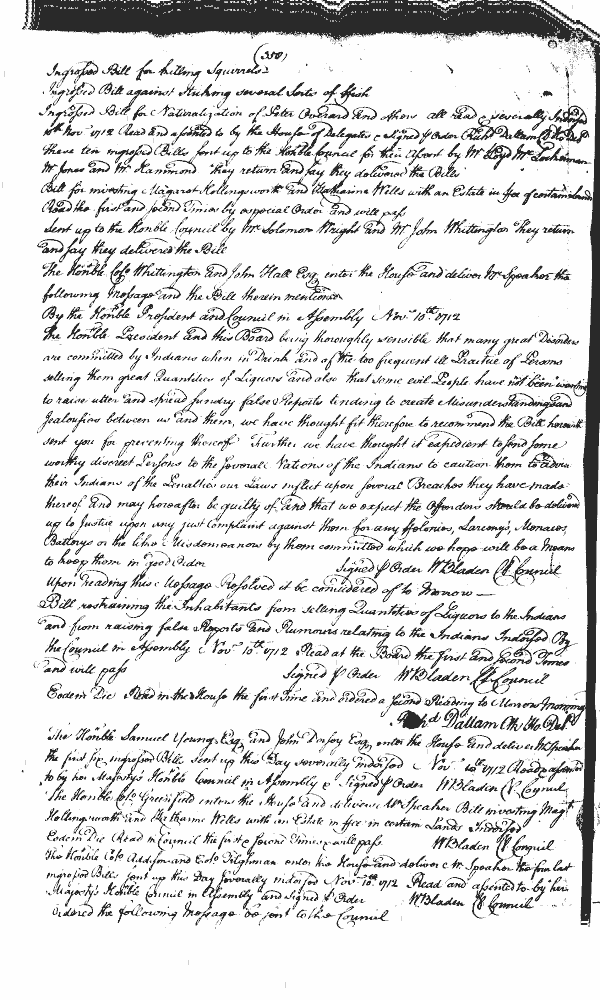 (350)
Ingrossed Bill for killing Squirrels
Ingrossed Bill against striking several Sorts of ffish
Ingrossed Bill for Naturalization of Peter and others all read & severally Indorsed
10th Novr 1712 Read and assented to by the House of Delegates & Signed p Order Richd Dallam Cl Ho Del
These ten ingrossed Bills sent up to the Honble Council for their Assent by Mr Loyd Mr
Mr Jones and Mr Hammond They return and say they delivered the Bills
Bill for investing Margaret Hollingsworth and Catharine Wells with an Estate in ffee of certain Lands
Read the first and second Times by especial Order and will pass
Sent up to the Honble Council by Mr Solomon Wright and Mr John Whittington They return
and say they delivered the Bill
The Honble Colo Whittington and John Hall Esqr enter the House and deliver Mr Speaker the
following Message and the Bill therein mentioned
By the Honble President and Council in Assembly Novr 10th 1712
The Honble President and this Board being thoroughly sensible that many great Disorders
are committed by Indians when in Drink and of the too frequent ill Practice of Persons
selling them great Quantities of Liquors and also that some evil People have not been wanting
to raise utter and spread sundry false Reports tending to create Misunderstandings and
Jealousies between us and them, we have thought fit therefore to recommend the Bill herewith
sent you for preventing thereof Further we have thought it expedient to send some
worthy discreet Persons to the several Nations of the Indians to caution them to advise
their Indians of the Penalties our Laws inflict upon several Breaches they have made
thereof and may hereafter be guilty of, and that we expect the Offenders should be delivered
up to Justice upon any just Complaint against them for any ffelonies, Larcenys, Menaces,
Batterys or the like Misdemeanors by them committed which we hope will be a Means
to keep them in good Order Signed p Order W Bladen Cl Council
Upon reading this Message Resolved it be considered of to Morrow
Bill restraining the Inhabitants from selling Quantities of Liquors to the Indians
and from raising false Reports and Rumours relating to the Indians Indorsed By
the Council in Assembly Novr 10th 1712 Read at the Board the first and second Times
and will pass Signed p Order W Bladen Cl Council
Eodem Die Read in the House the first Time and ordered a second Reading to Morrow morning
Richd Dallam Cl Ho Del
The Honble Samuel Young Esqr and John Dorsey Esqr enter the House and deliver Mr Speaker
the first six ingrossed Bills sent up this Day severally indorsed Novr 10th 1712 Read & assented
to by her Majestys Honble Council in Assembly & Signed p Order W Bladen Cl Council
The Honble Colo Greenfield enters the House and delivers Mr Speaker Bill investing Margt
Hollingsworth and Katharine Wells with an Estate in ffee in certain Lands Indorsed
Eodem Die Read in Council the first & second Times & will pass W Bladen Cl Council
The Honble Colo Addison and Colo Tilghman enter the House and deliver Mr Speaker the four last
ingrossed Bills sent up this Day severally indorsed Novr 10th 1712 Read and assented to by her
Majestys Honble Council in Assembly and Signed p Order W Bladen Cl Council
Ordered the following Message be sent to the Council